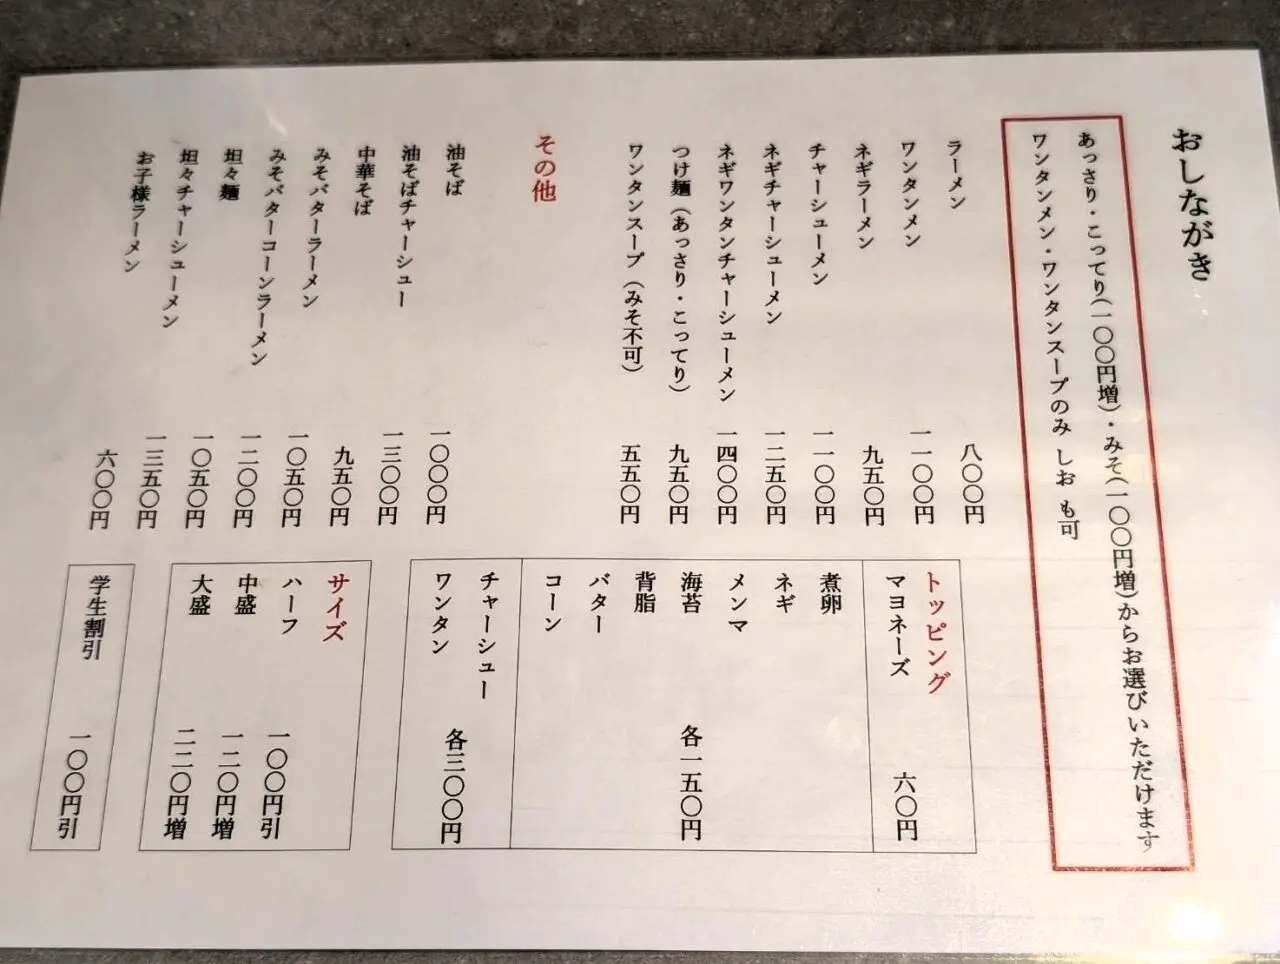 おしながき
あっさり・こってり(一〇〇円増)・みそ(一〇〇円増)からお選びいただけます
ワンタンメン・ワンタンスープのみ しお も可
ラーメン 八〇〇円
ワンタンメン 一一〇〇円
ネギラーメン 九五〇円
チャーシューメン 一一〇〇円
ネギチャーシューメン 一二五〇円
ネギワンタンチャーシューメン 一四〇〇円
つけ麺(あっさり・こってり) 九五〇円
ワンタンスープ(みそ不可) 五五〇円
その他
油そば 一〇〇〇円
油そばチャーシュー 一三〇〇円
中華そば 九五〇円
みそバターラーメン 一〇五〇円
みそバターコーンラーメン 一二〇〇円
坦々麺 一〇五〇円
坦々チャーシューメン 一三五〇円
お子様ラーメン 六〇〇円
トッピング
マヨネーズ 六〇円
煮卵
ネギ
メンマ
海苔 各一五〇円
背脂
バター
コーン
チャーシュー
ワンタン 各三〇〇円
サイズ
ハーフ 一〇〇円引
中盛 一二〇円増
大盛 二二〇円増
学生割引 一〇〇円引